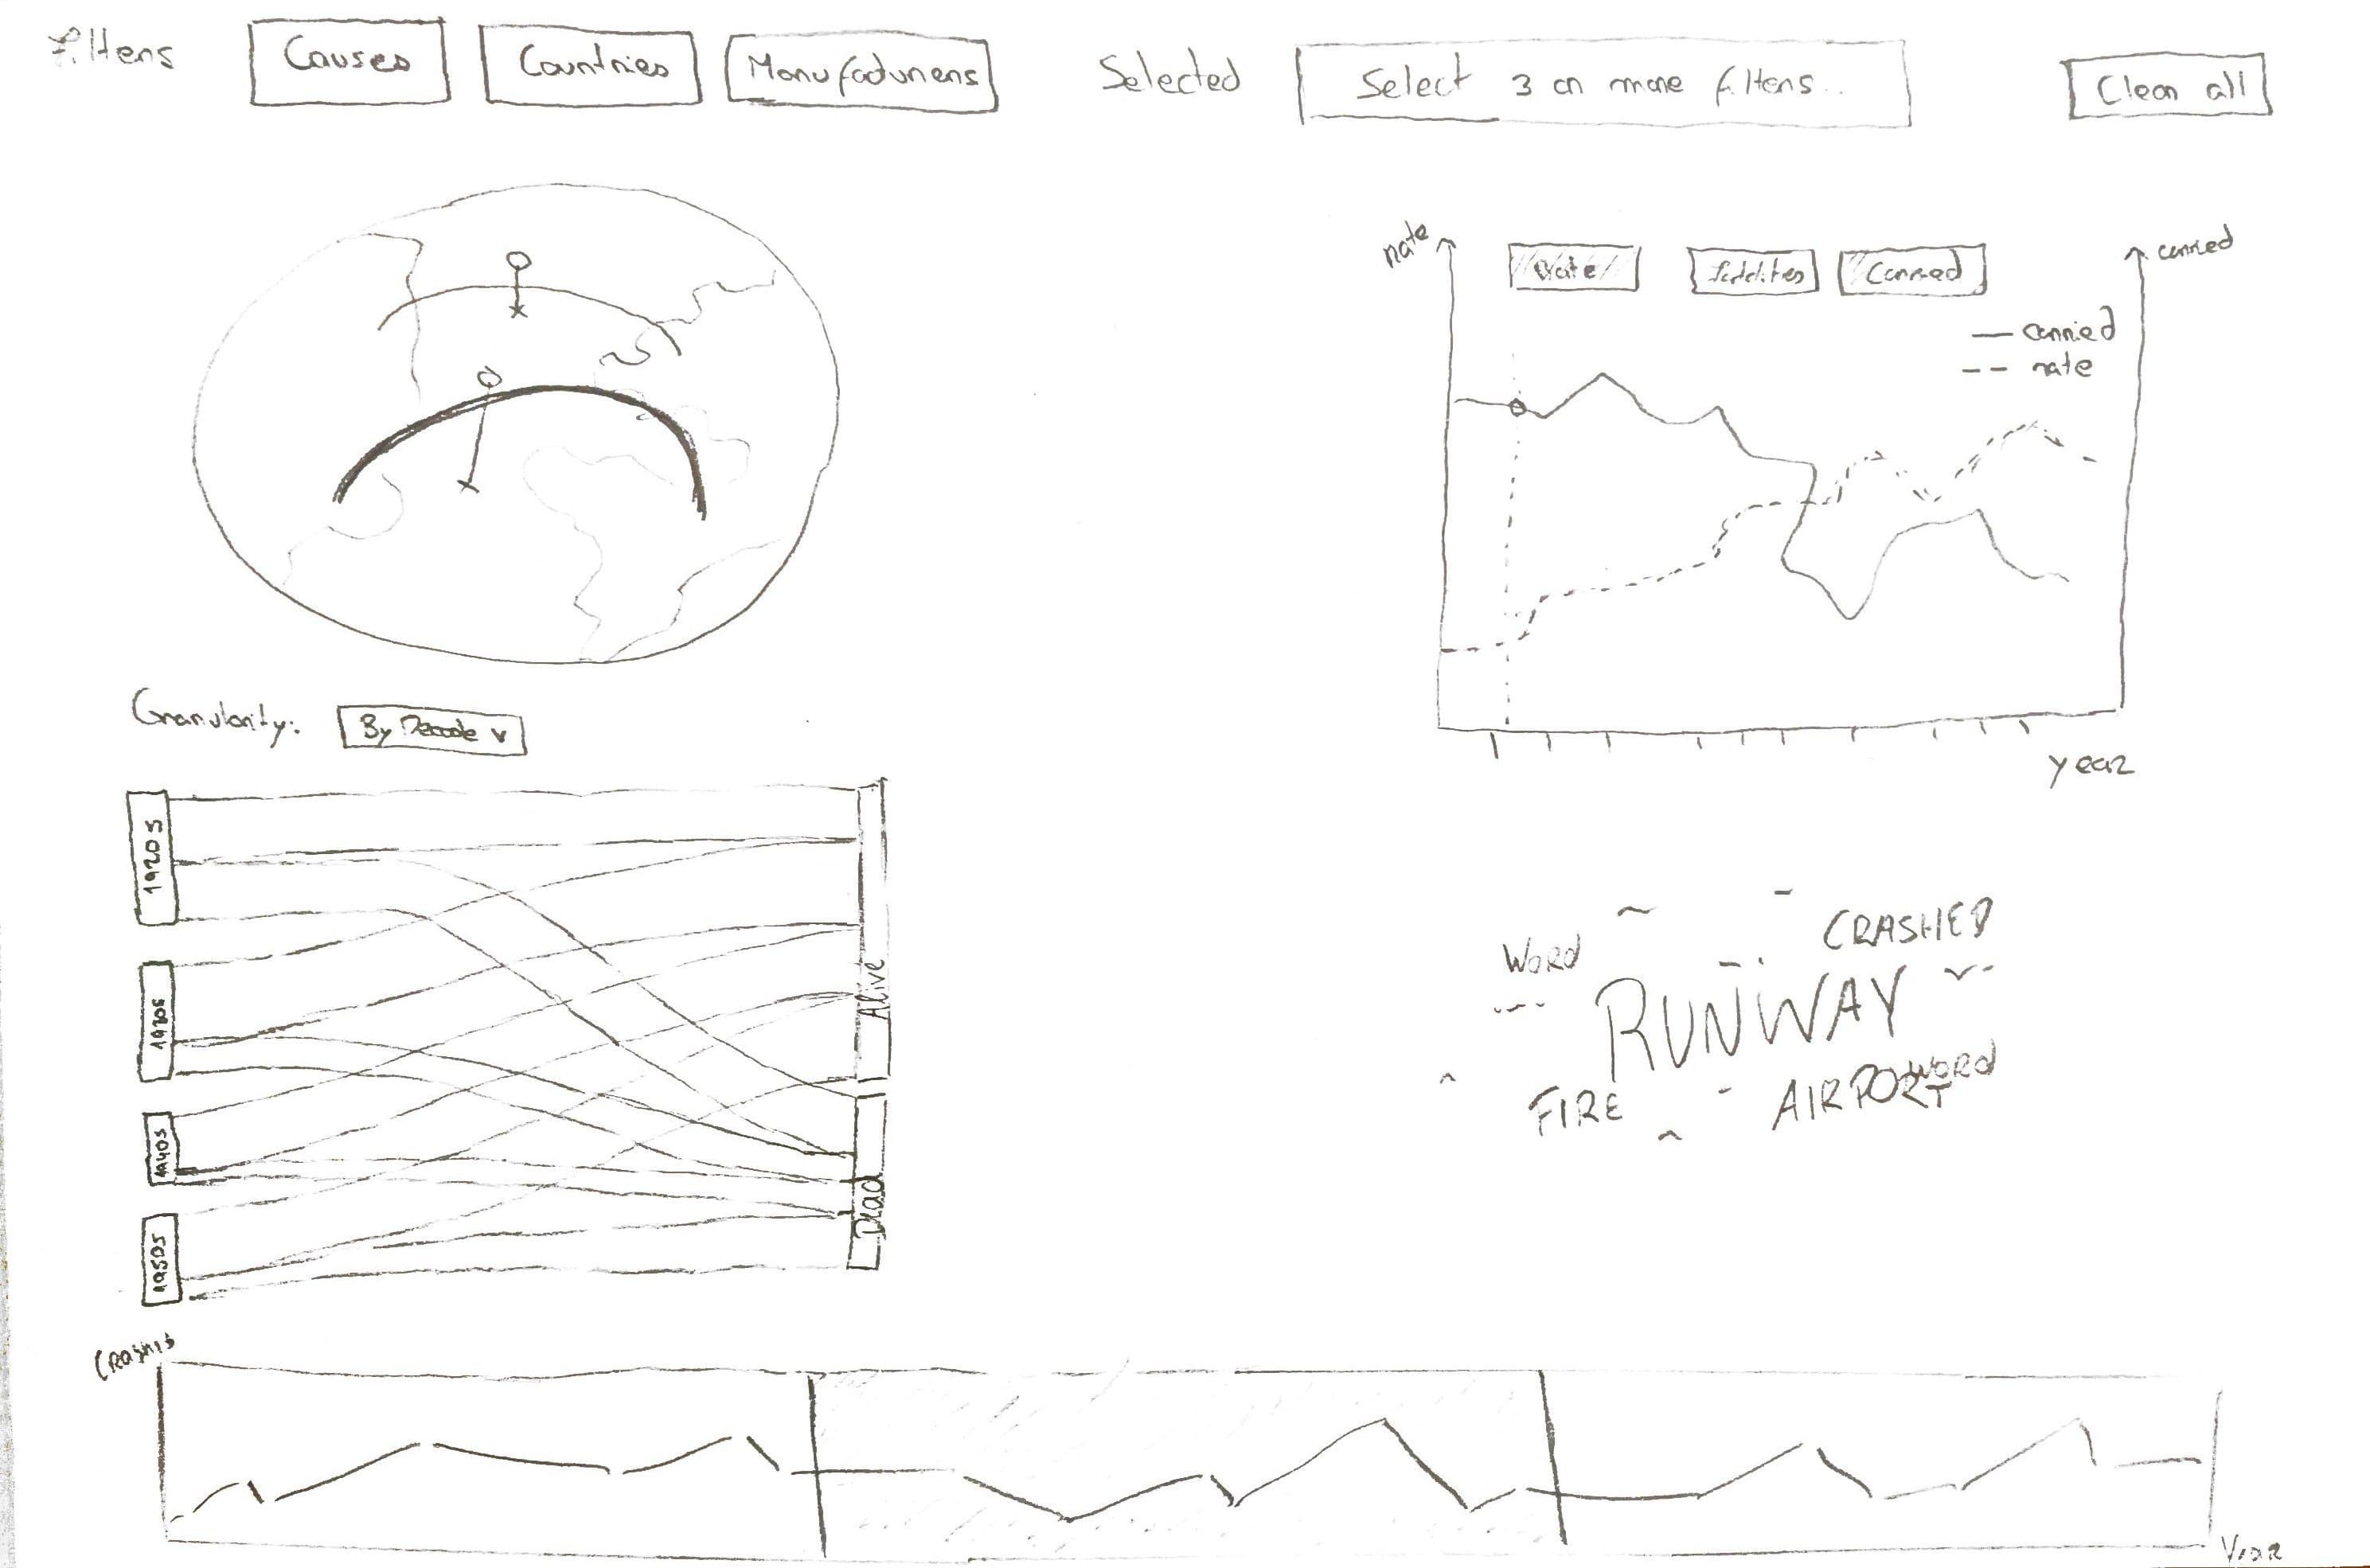 Filters
Causes
Countries
Manufacturers
Selected
Select 3 or more filters..
Clear all
rate
Rate
Fatalities
Carried
carried
carried
rate
year
Granularity:
By Decade v
1920s
1930s
1940s
1950s
Alive
Dead
WORD
CRASHED
RUNWAY
FIRE
AIRPORT
WORD
Crashes
Year